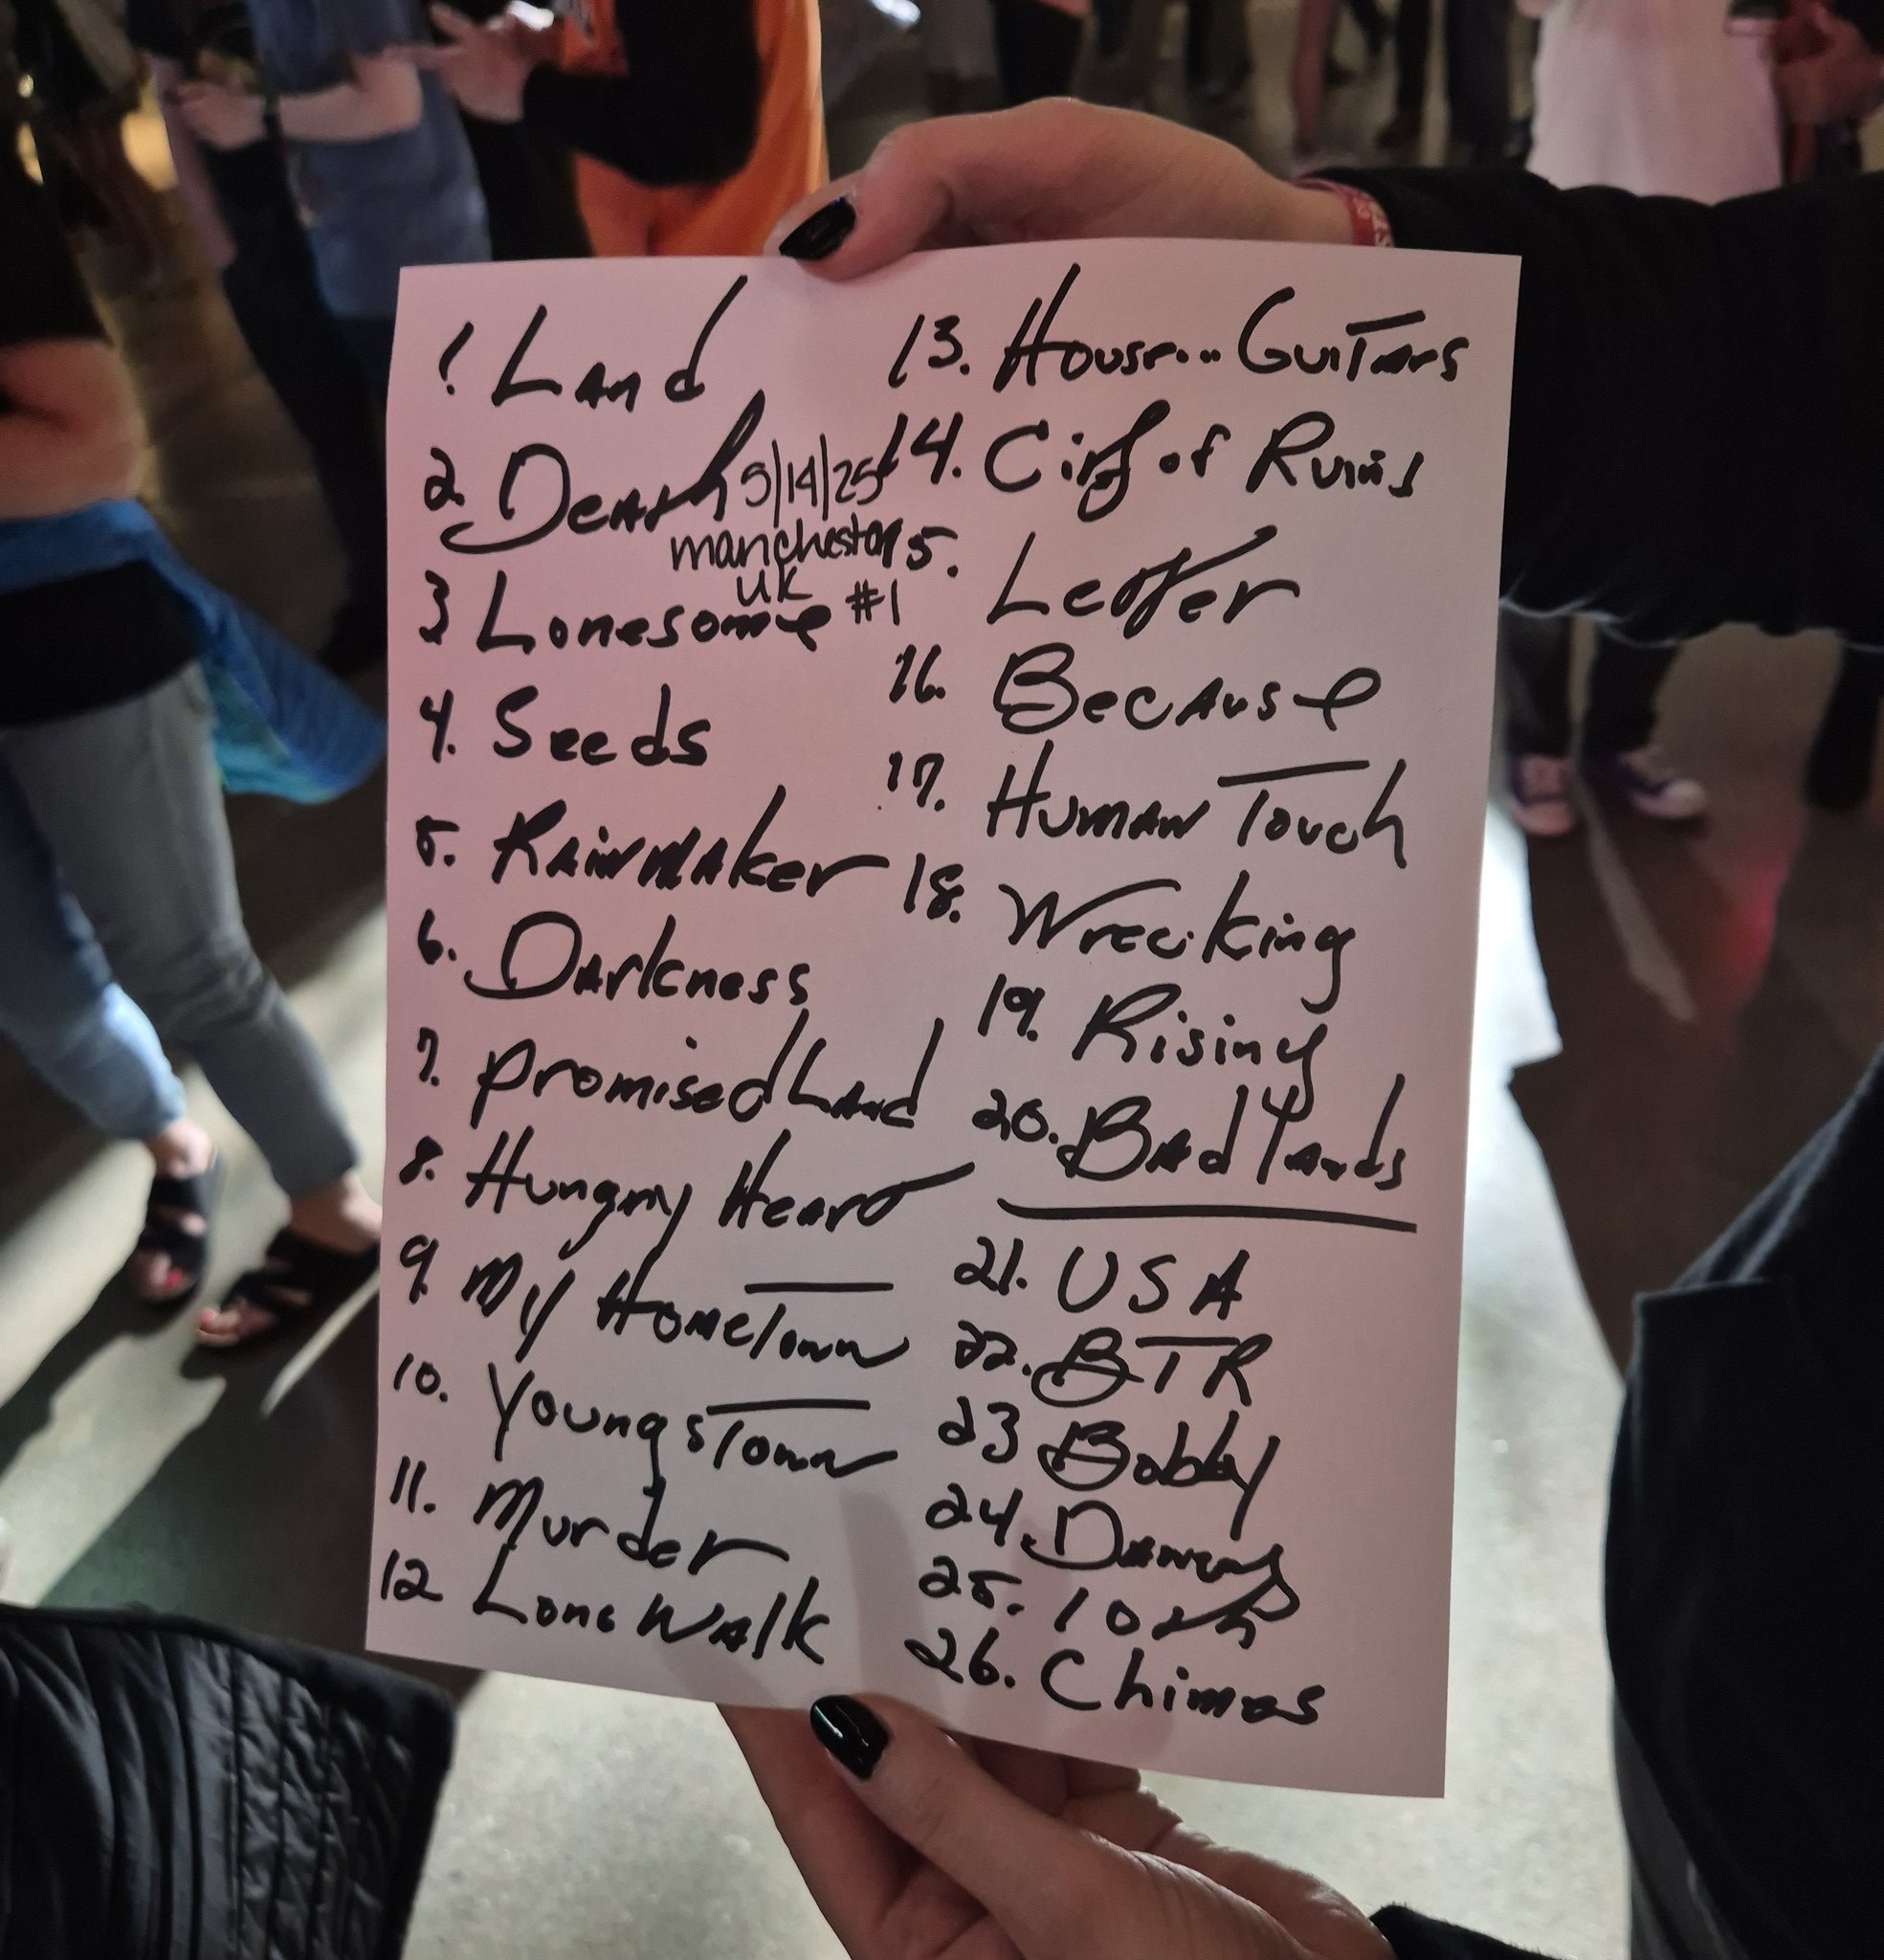 1 Land
2. Death
5/14/25
manchester
UK #1
3 Lonesome
4. Seeds
5. Rainmaker
6. Darkness
7. Promised Land
8. Hungry Heart
9. My Hometown
10. Youngstown
11. Murder
12 Long Walk
13. House... Guitars
14. City of Ruins
15. Letter
16. Because
17. Human Touch
18. Wrecking
19. Rising
20. Badlands
21. USA
22. BTR
23 Bobby
24. Dancing
25. 10th
26. Chimes